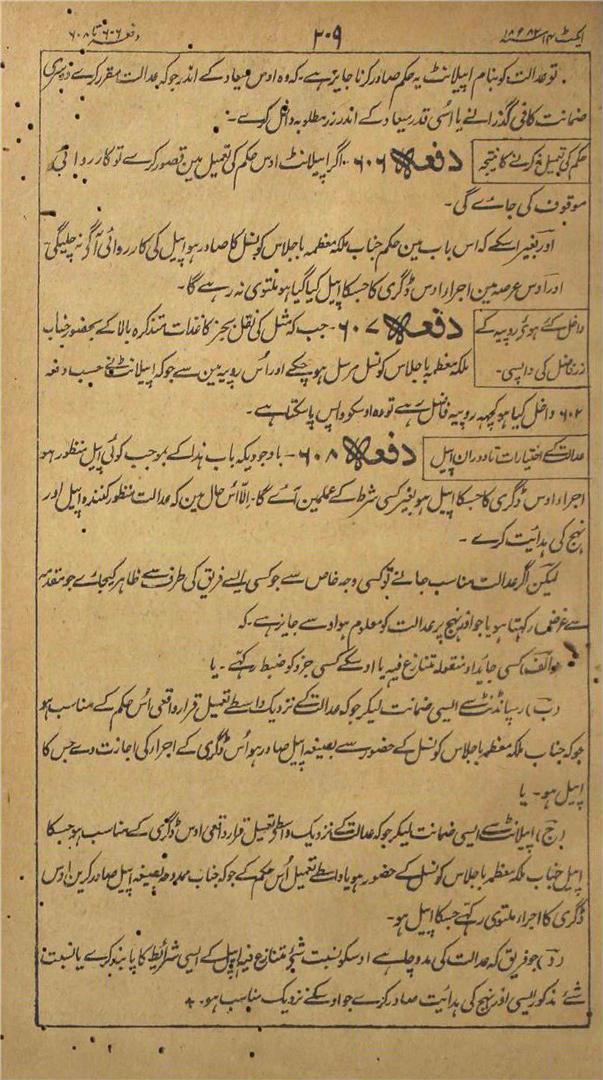 ایکٹ ۱۴ ۱۸۸۲ء ۲۰۹ دفعہ ۶۰۶ تا ۶۰۸
تو عدالت کو بنام اپیلانٹ یہ حکم صادر کرنا جایز ہے۔ کہ وہ اوس میعاد کے اندر جو کہ عدالت مقرر کرے دوسری
ضمانت کافی گذرانے یا اُسی قدر میعاد کے اندر زر مطلوبہ داخل کرے۔
حکم کی تعمیل نہ کرنے کا نتیجہ دفعہ ۶۰۶۔ اگر اپیلانٹ اوس حکم کی تعمیل مین قصور کرے تو کارروائی
موقوف کی جاے گی۔
اور بغیر اسکے کہ اس باب مین حکم جناب ملکہ معظمہ باجلاس کونسل کا صادر ہو اپیل کی کارروائی آگے نہ چلیگی۔
اور اوس عرصہ مین اجراء اوس ڈگری کا جسکا اپیل کیا گیا ہو ملتوی نہ رہے گا۔
داخل کئے ہوئے روپیہ کے دفعہ ۶۰۷۔ جب کہ مثل کی نقل بجز کاغذات متذکرہ بالا کے بحضور جناب
زر فاضل کی واپسی۔ ملکہ معظمہ باجلاس کونسل مرسل ہو چکے اور اُس روپیہ مین سے جو کہ اپیلانٹ نے حسب دفعہ
۶۰۲ داخل کیا ہو کچہہ روپیہ فاضل رہے تو وہ اوسکو واپس پا سکتا ہے۔
عدالت کے اختیارات تا دوران اپیل دفعہ ۶۰۸۔ باوجودیکہ باب ہذا کے بموجب کوئی اپیل منظور ہو
اجراء اوس ڈگری کا جسکا اپیل ہو بغیر کسی شرط کے عملمین آے گا۔ اِلّا اُس حال مین کہ عدالت منظور کنندہ اپیل اور
نہج کی ہدائیت کرے۔
لیکن اگر عدالت مناسب جانے تو کسی وجہ خاص سے جو کسی ایسے فریق کی طرف سے ظاہر کیجاے جو مقدمہ
سے غرض رکھتا ہو یا جو اور نہج پر عدالت کو معلوم ہو اوسے جایز ہے۔ کہ
(الف) کسی جایداد منقولہ متنازع فیہ یا اوسکے کسی جزو کو ضبط رکہے۔ یا
(ب) رسپانڈنٹ سے ایسی ضمانت لیکر جو کہ عدالت کے نزدیک واسطے تعمیل قرار واقعی اُس حکم کے مناسب ہو
جو کہ جناب ملکہ معظمہ باجلاس کونسل کے حضور سے بصیغہ اپیل صادر ہو اُس ڈگری کے اجراء کی اجازت دے جس کا
اپیل ہو۔ یا
(ج) اپیلانٹ سے ایسی ضمانت لیکر جو کہ عدالت کے نزدیک واسطے تعمیل قرار واقعی اوس ڈگری کے مناسب ہو جسکا
اپیل جناب ملکہ معظمہ باجلاس کونسل کے حضور ہو یا واسطے تعمیل اُس حکم کے جو کہ جناب ممدوحہ بصیغہ اپیل صادر کرین اوس
ڈگری کا اجراء ملتوی رکہے جسکا اپیل ہو۔
(د) جو فریق کہ عدالت کی مدد چاہے اوسکو نسبت شئے متنازع فیہ اپیل کے ایسی شرائیط کا پابند کرے یا نسبت
شئے مذکور ایسی اور نہج کی ہدائیت صادر کرے جو اوسکے نزدیک مناسب ہو۔